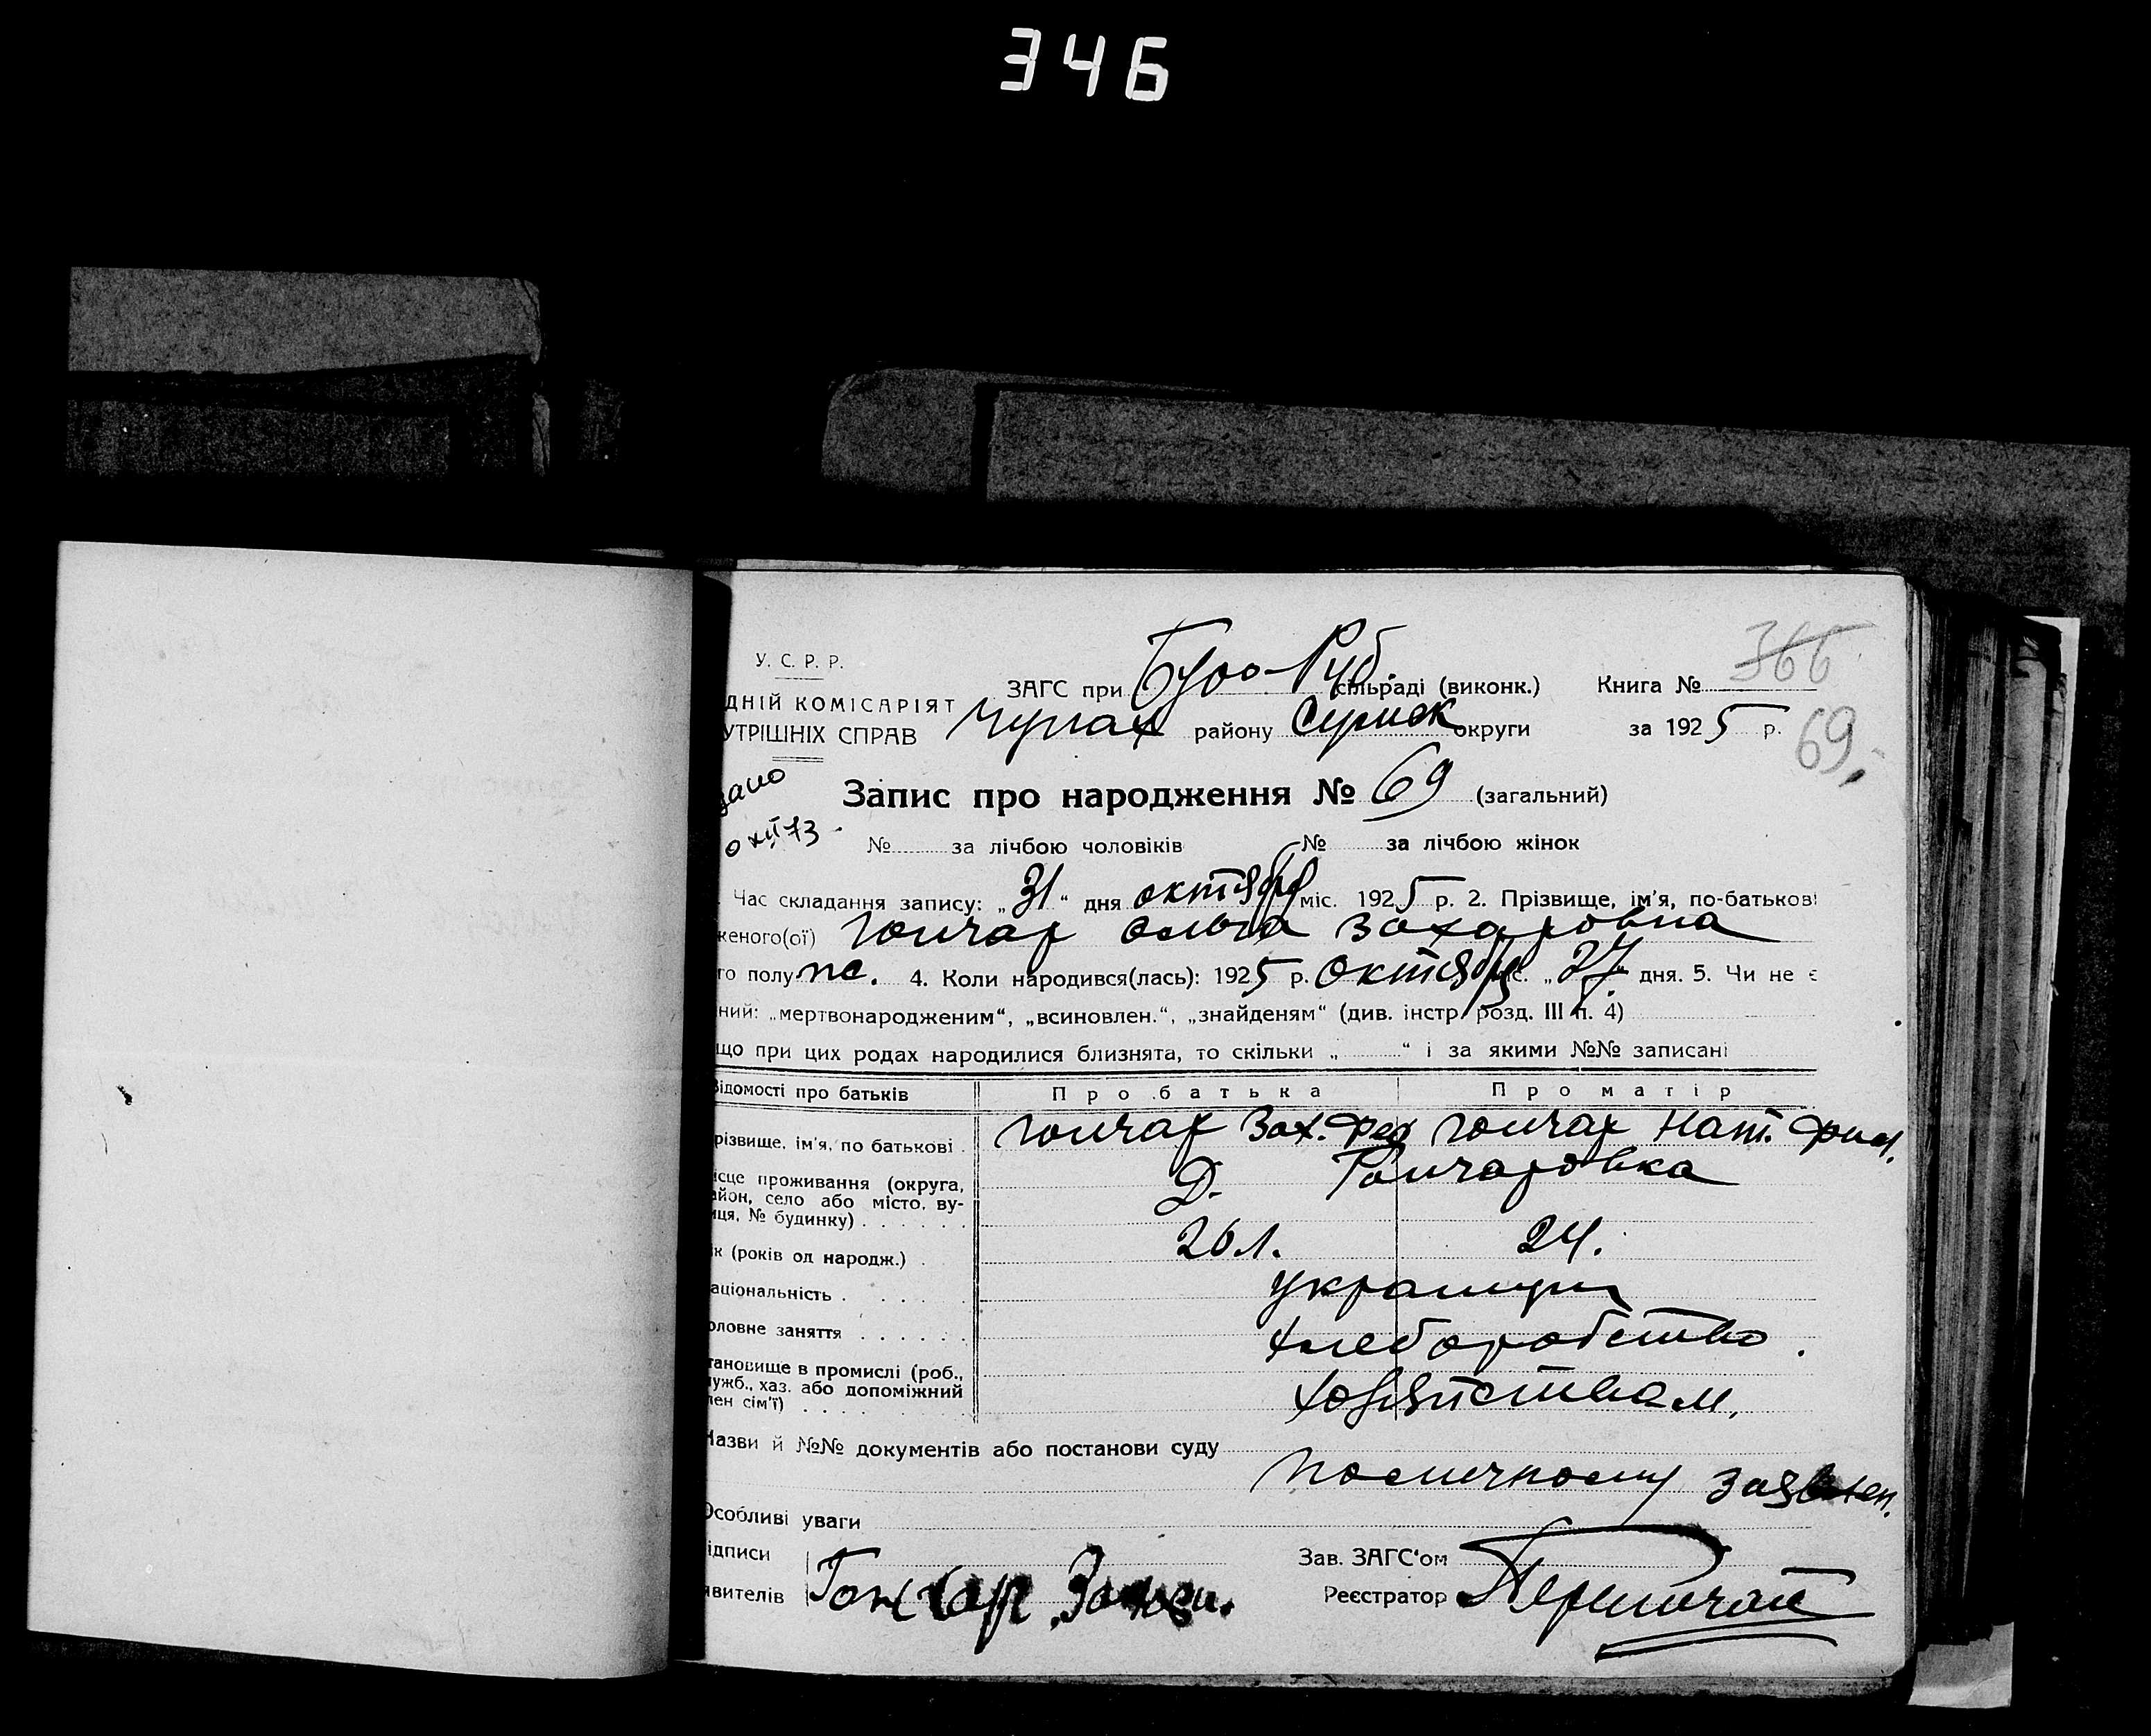 346
У. С. Р. Р.
ЗАГС при Буд-Руб. сільраді (виконк.) Книга № 366
ДНІЙ КОМІСАРІЯТ
УТРІШНІХ СПРАВ Чупах району Сумск округи за 1925 р. 69.
Запис про народження № 69 (загальний)
XII 73
№ за лічбою чоловіків № за лічбою жінок
Час складання запису: „31“ дня октября міс. 1925 р. 2. Прізвище, ім'я, по-батькові
женого(ої) Гончар Ольга Захаровна
го полу 4. Коли народився(лась): 1925 р. Октября „27“ дня. 5. Чи не є
ний: „мертвонародженим“, „всиновлен.“, „знайденям“ (див. інстр. розд. III п. 4)
що при цих родах народилися близнята, то скільки „ “ і за якими №№ записані
Відомості про батьків Про батька Про матір
різвище, ім'я, по батькові Гончар Зах. Фед Гончар Нат. Фил.
ісце проживання (округа, Д. Гончаровка
айон, село або місто, ву-
иця, № будинку)
ік (років од народж.) 26 л. 24.
аціональність украинци
оловне заняття хлеборобство.
тановище в промислі (роб.,
лужб., хаз. або допоміжний хозяйством.
лен сім'ї)
Назви й №№ документів або постанови суду
по личному заявлен.
Особливі уваги
ідписи Зав. ЗАГС'ом
явителів Гончар Реєстратор